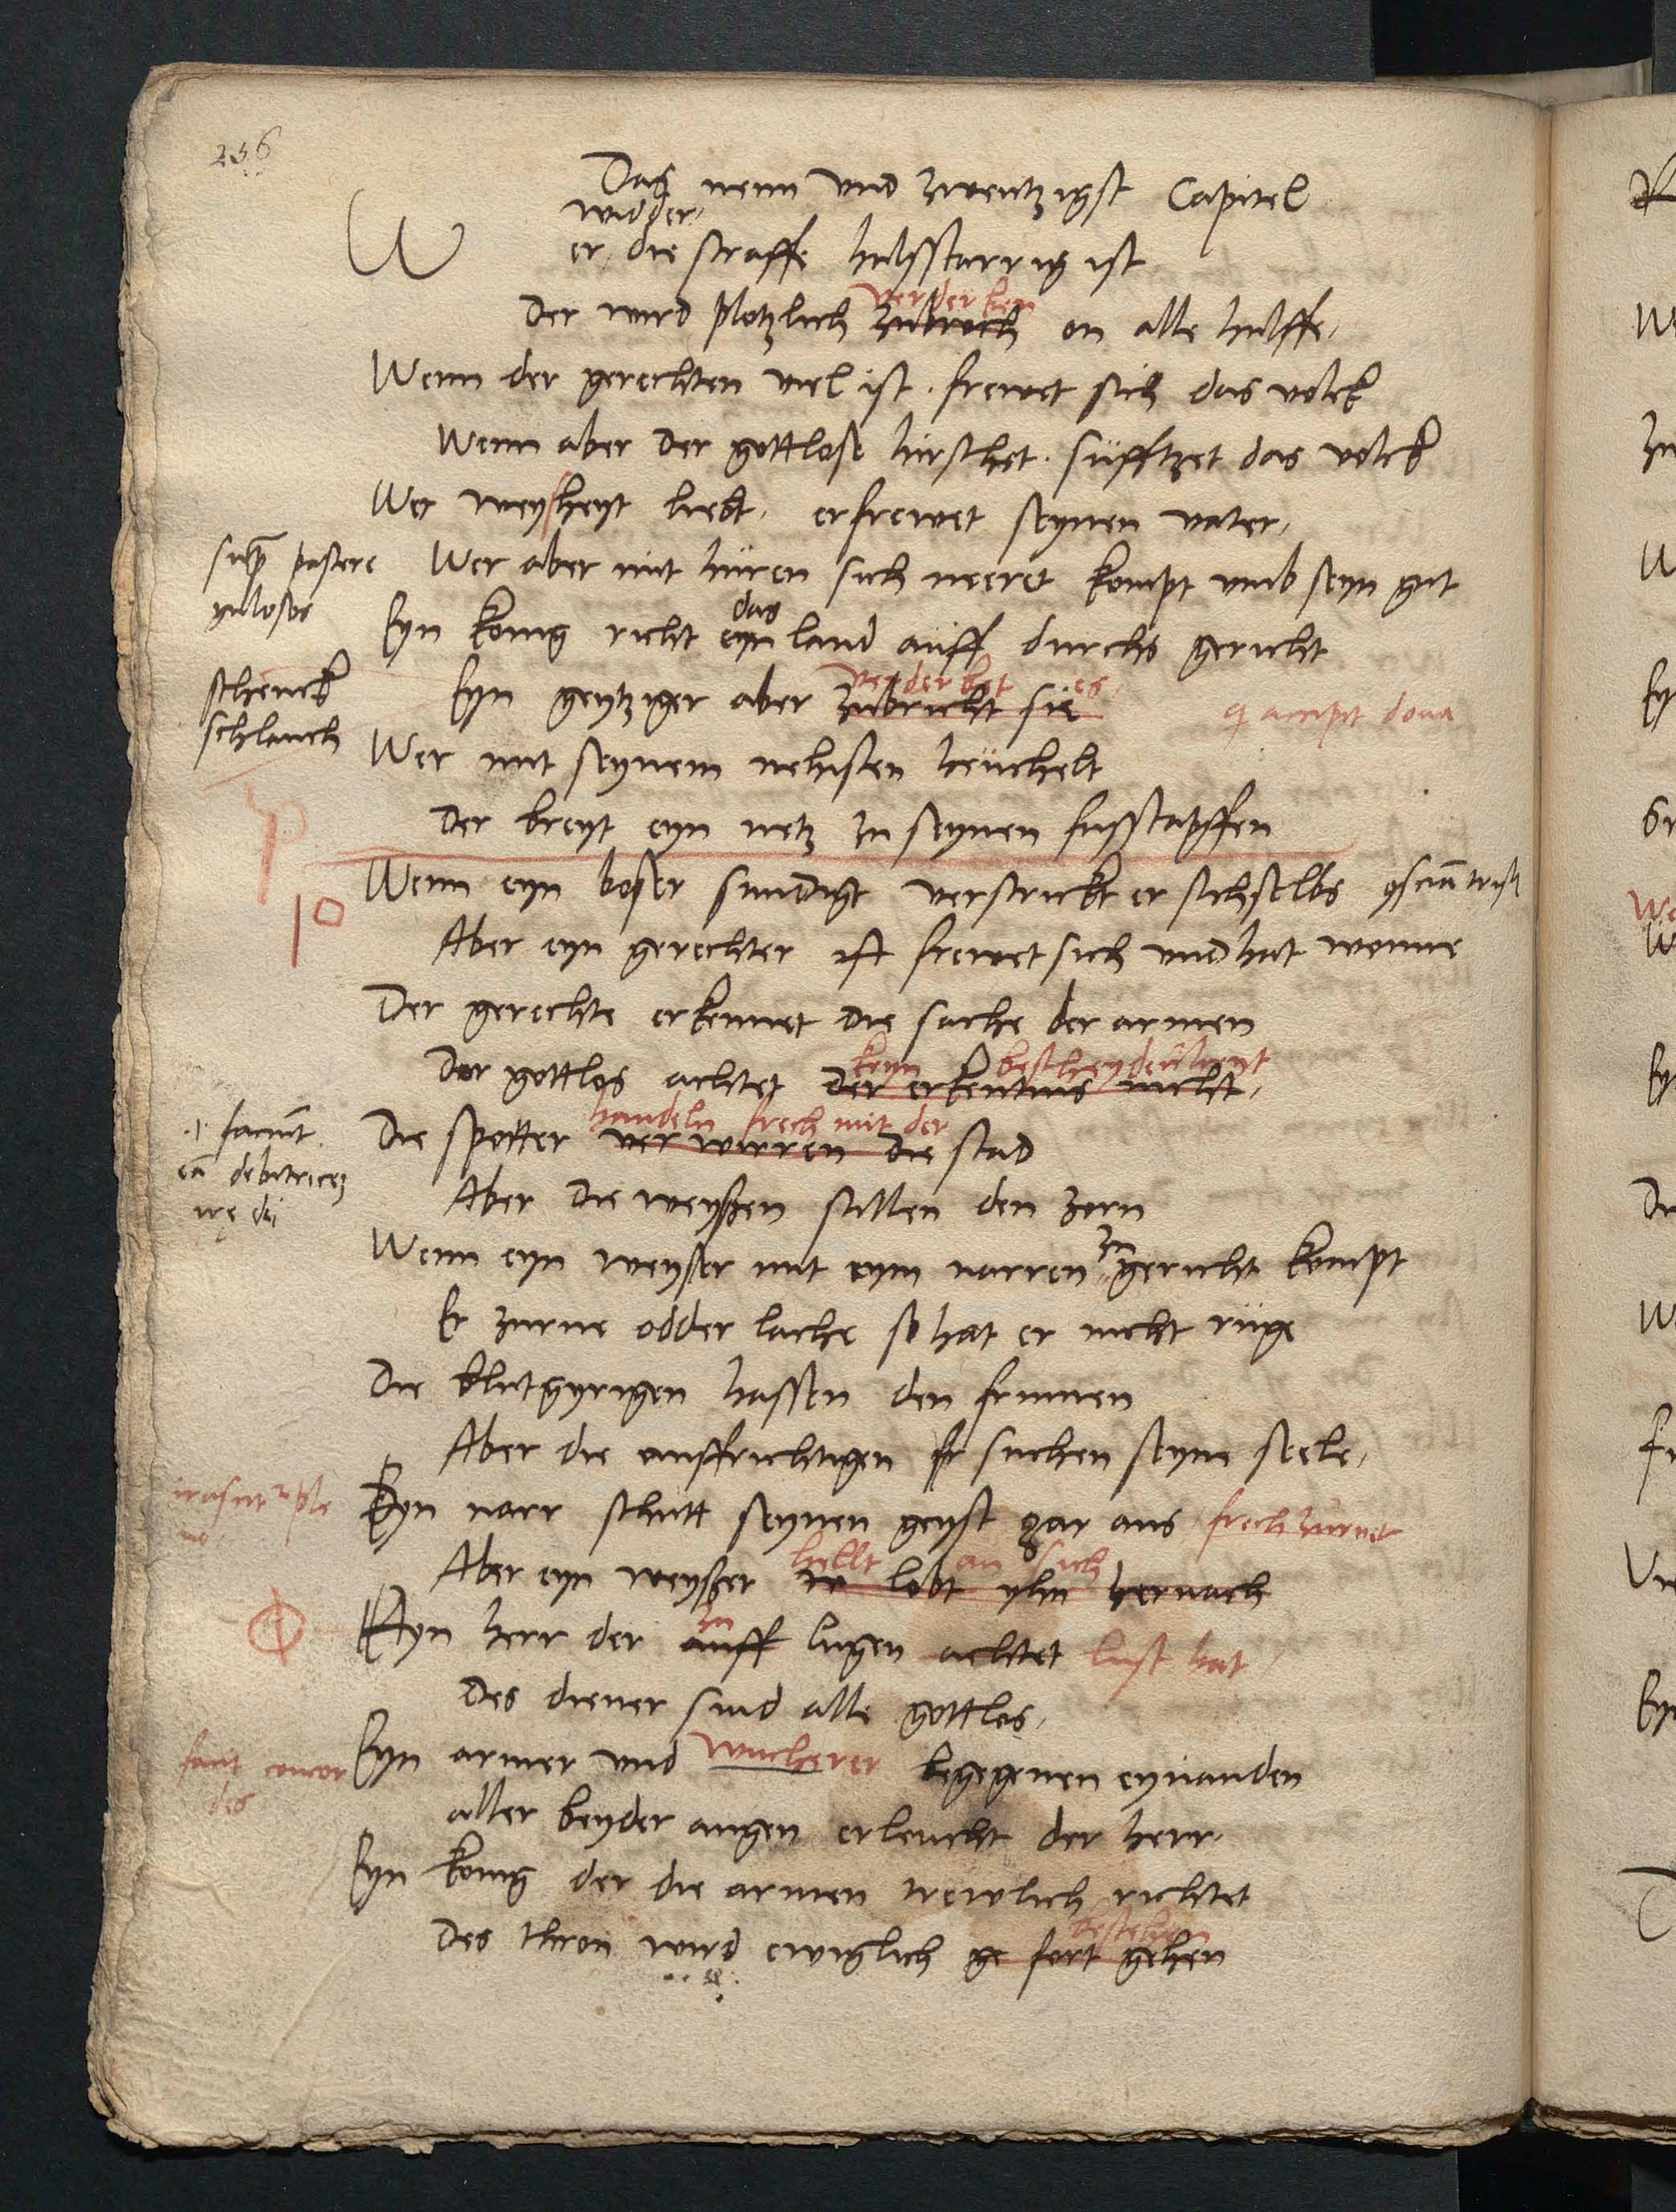 256
Das neun und zwentzigst Capitel
widder
Wer die straffe halsstarrig ist
verderben
Der wird plotzlich zubroch on alle hulffe
Wenn der gerechten viel ist . frewet sich das volck
Wenn aber der gottlose hirschet . sufftzet das volck
Wer weysheyt liebt, erfrewet seynen vater,
Wer aber mit huren sich neeret kompt umb seyn gut
das
Eyn konig richt eyn land auff durchs gericht
schenck
verderbet es
Eyn geytziger aber zubricht sie
schlauch
Wer mit seynem nehisten heuchelt
der breyt eyn netz zu seynen fusstapffen
10
Wenn eyn boser sundigt verstrickt er sichselbs
Aber eyn gerechter ist frewet sich und hat wonne
Der gerechte erkennet die sache der armen
keyn
Der gottlos achtet der erkentnis nicht,
handeln frech mit der
Die spotter verwirren die stad
Aber die weyßen stillen den zorn
zu
Wenn eyn weyser mit eym narren gericht kompt
Er zurne odder lache so hat er nicht ruge
Die blutgyrigen hassen den frumen
Aber die auffrichtigen suchen seyne seele,
Eyn narr schutt seynen geyst gar aus
hellt an sich
Aber eyn weyßer lobt yhn hernach
zu
Eyn herr der auff lugen achtet lust hat
Des diener sind alle gottlos,
Eyn armer und wucherer begegenen eynander
aller beyder augen erleucht der herr.
Eyn konig der die armen trewlich richtet
bestehen
Des thron wird ewiglich ge fort gehen